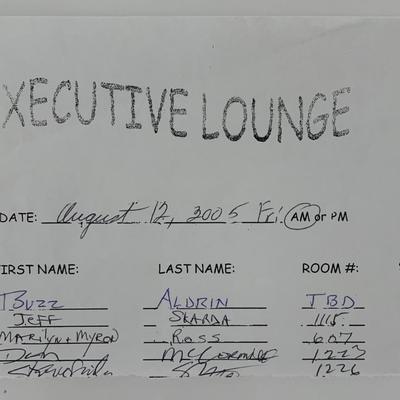 XECUTIVE LOUNGE
DATE: August 12, 2005 Fri AM or PM
FIRST NAME: LAST NAME: ROOM #:
BUZZ ALDRIN TBD
JEFF SKARDA 1115
MARILYN + MYRON ROSS 607
1226